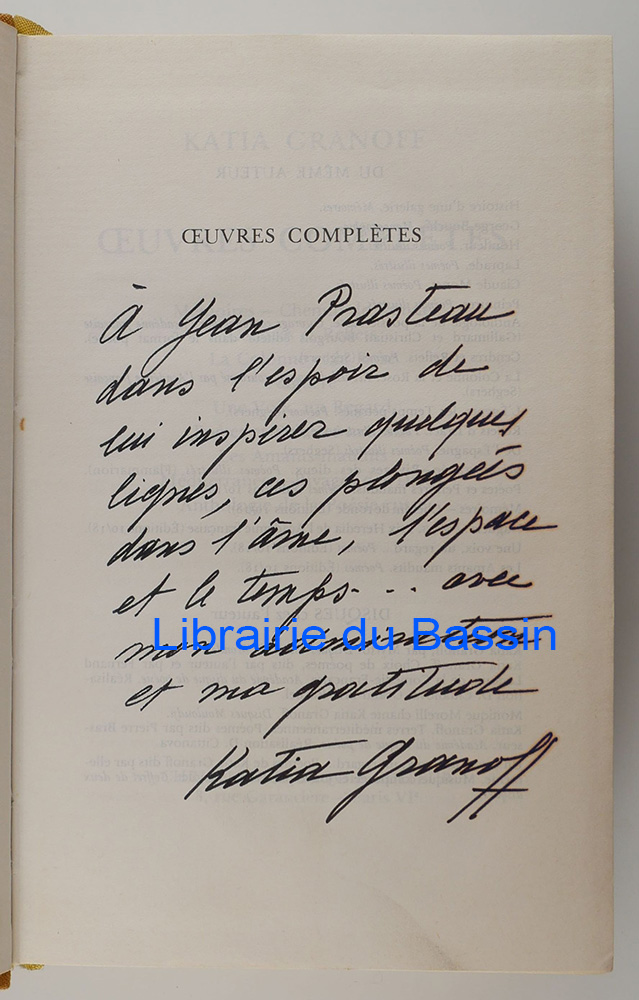 ŒUVRES COMPLÈTES
À Jean Prasteau
dans l'espoir de
lui inspirer quelques
lignes, ces plongées
dans l'âme, l'espace
et le temps... avec
mon admiration
Librairie du Bassin
et ma gratitude
Katia Granoff